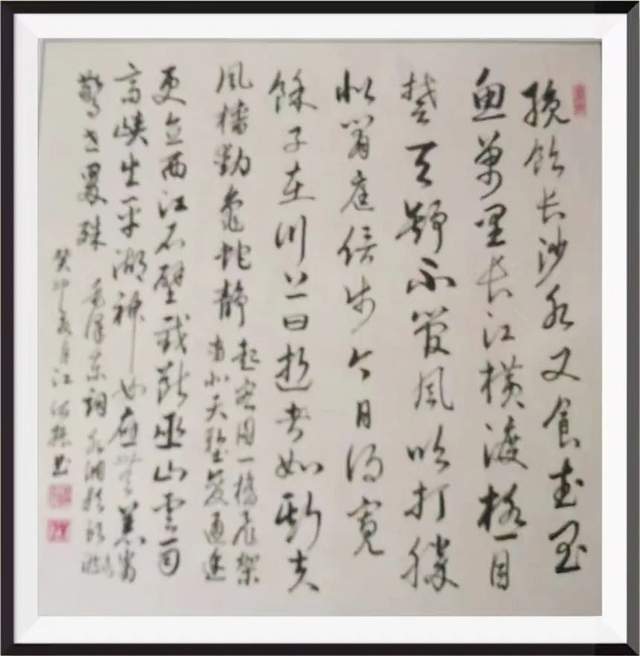 纔饮长沙水又食武昌
鱼万里长江横渡极目
楚天舒不管风吹打胜
似閒庭信步今日得宽
馀子在川上曰逝者如斯夫
风樯动龟蛇静 起宏图一桥飞架
南北天堑变通途
更立西江石壁截断巫山云雨
高峡出平湖神女应无恙当
惊世界殊 毛泽东词水调歌头游泳
癸卯年 江 书